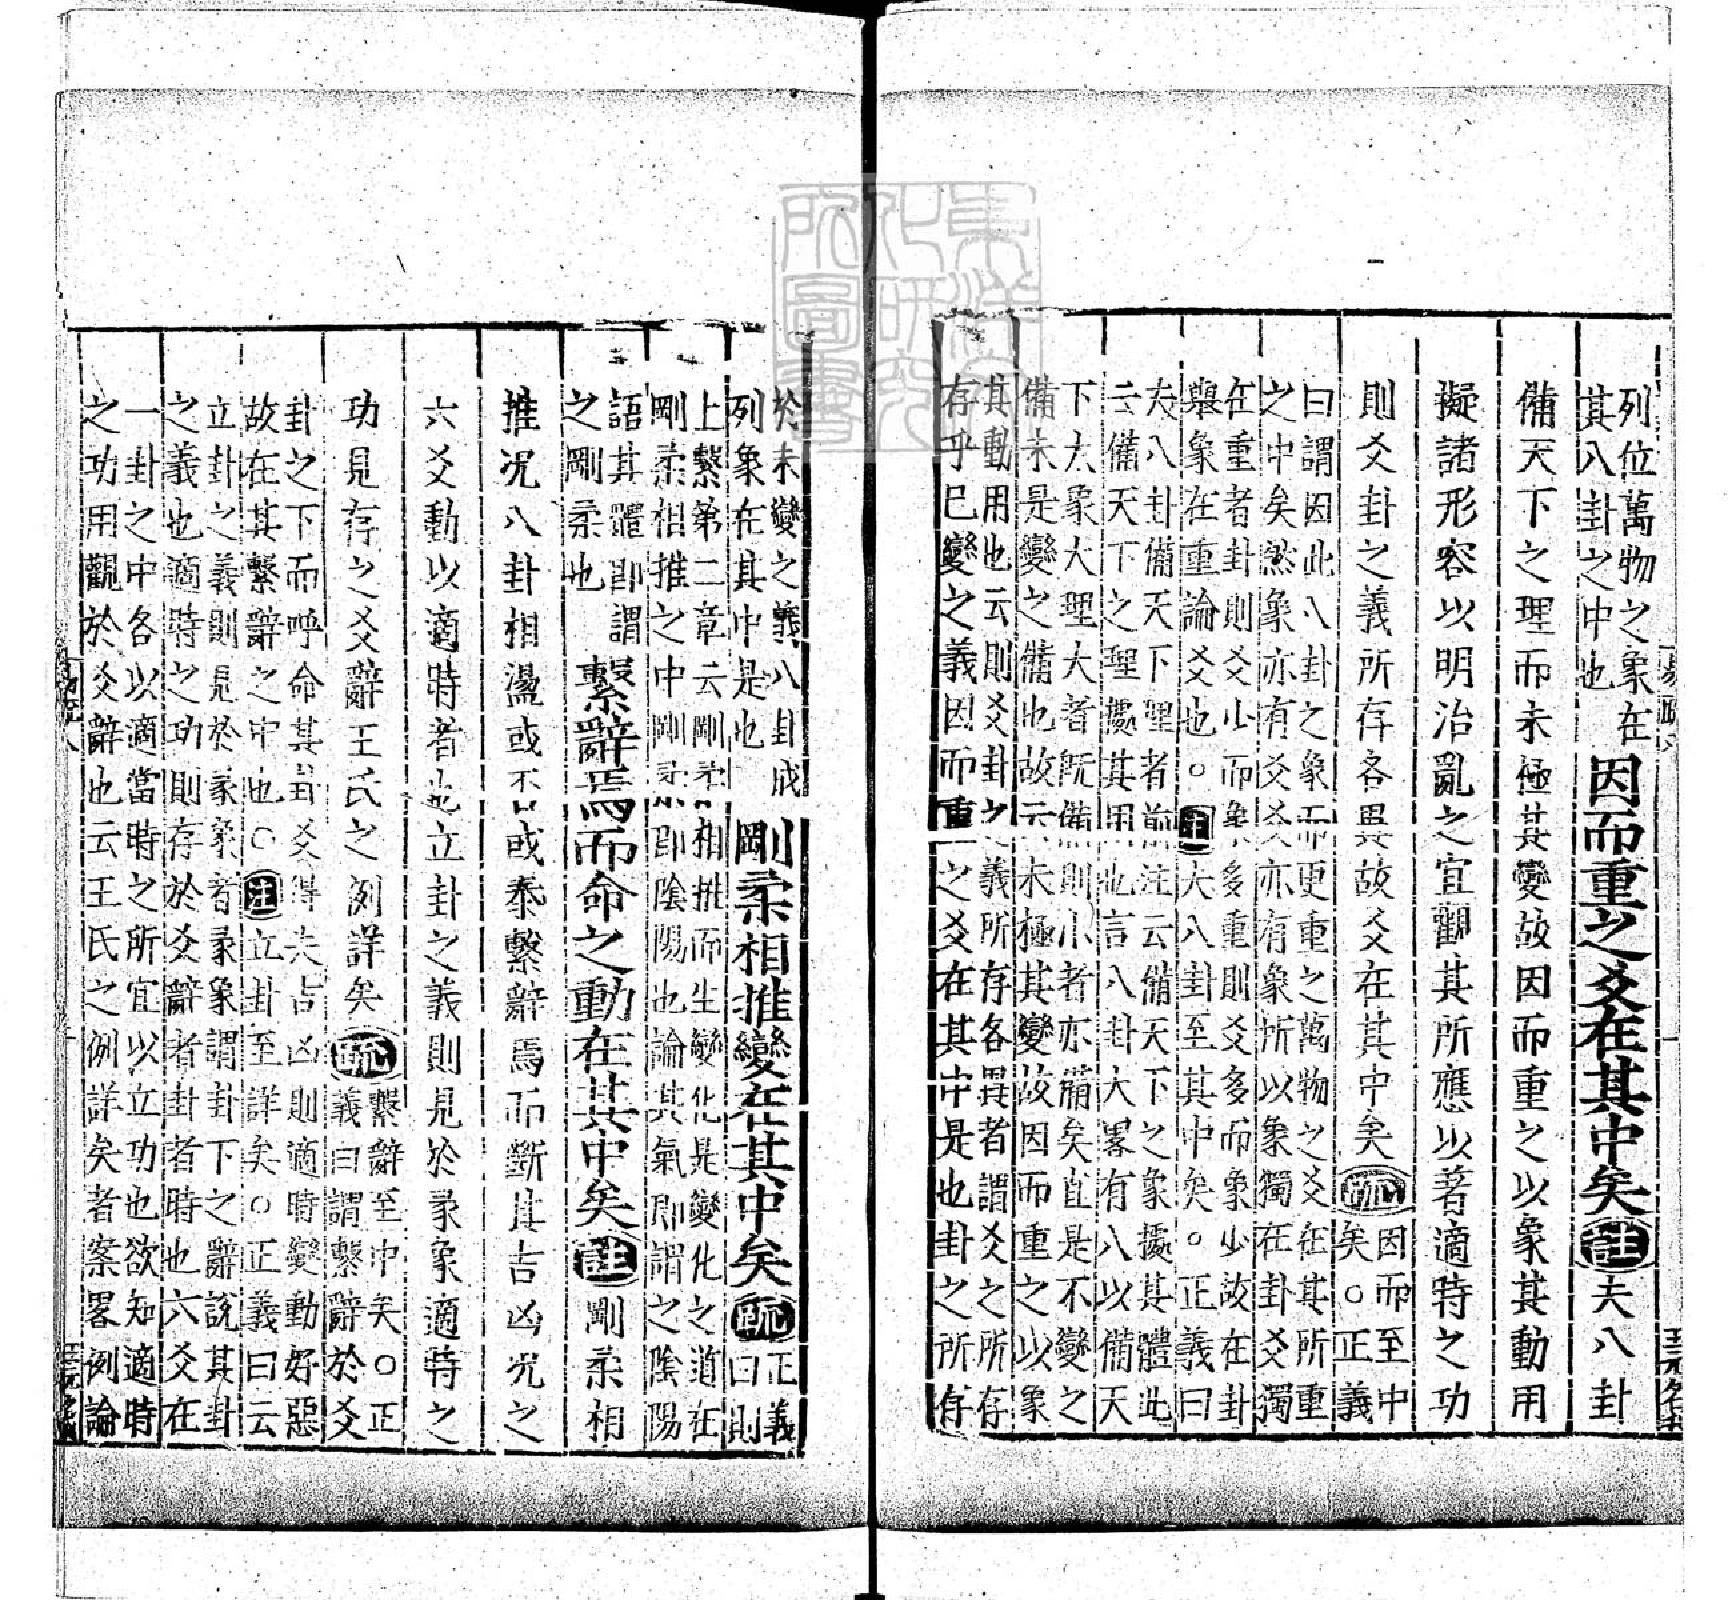 列位萬物之象在
其八卦之中也
因而重之爻在其中矣註夫八卦
備天下之理而未極其變故因而重之以象其動用
擬諸形容以明治亂之宜觀其所應以著適時之功
則爻卦之義所存各異故爻在其中矣疏
因而至中
矣○正義
曰謂因此八卦之象而更重之萬物之爻在其所重
之中矣然象亦有爻爻亦有象所以象獨在卦爻獨
在重者卦則爻少而象多重則爻多而象少故在卦
舉象在重論爻也○注夫八卦至其中矣○正義曰
夫八卦備天下理者前注云備天下之象據其體此
云備天下之理據其用也言八卦大略有八以備天
下大象大理大者既備則小者亦備矣直是不變之
備未是變之備也故云未極其變故因而重之以象
其動用也云則爻卦之義所存各異者謂爻之所存
存乎已變之義因而重之爻在其中是也卦之所存
於未變之義八卦成
列象在其中是也
剛柔相推變在其中矣疏
正義
曰則
上繫第二章云剛柔相推而生變化是變化之道在
剛柔相推之中剛柔即陰陽也論其氣即謂之陰陽
語其體即謂
之剛柔也
繫辭焉而命之動在其中矣註剛柔相
推況八卦相盪或否或泰繫辭焉而斷其吉凶況之
六爻動以適時者也立卦之義則見於彖象適時之
功見存之爻辭王氏之例詳矣疏
繫辭至中矣○正
義曰謂繫辭於爻
卦之下而呼命其卦爻得失吉凶則適時變動好惡
故在其繫辭之中也○注立卦至詳矣○正義曰云
立卦之義則見於彖象者彖象謂卦下之辭說其卦
之義也適時之功則存於爻辭者卦者時也六爻在
一卦之中各以適當時之所宜以立功也欲知適時
之功用觀於爻辭也云王氏之例詳矣者案畧例論